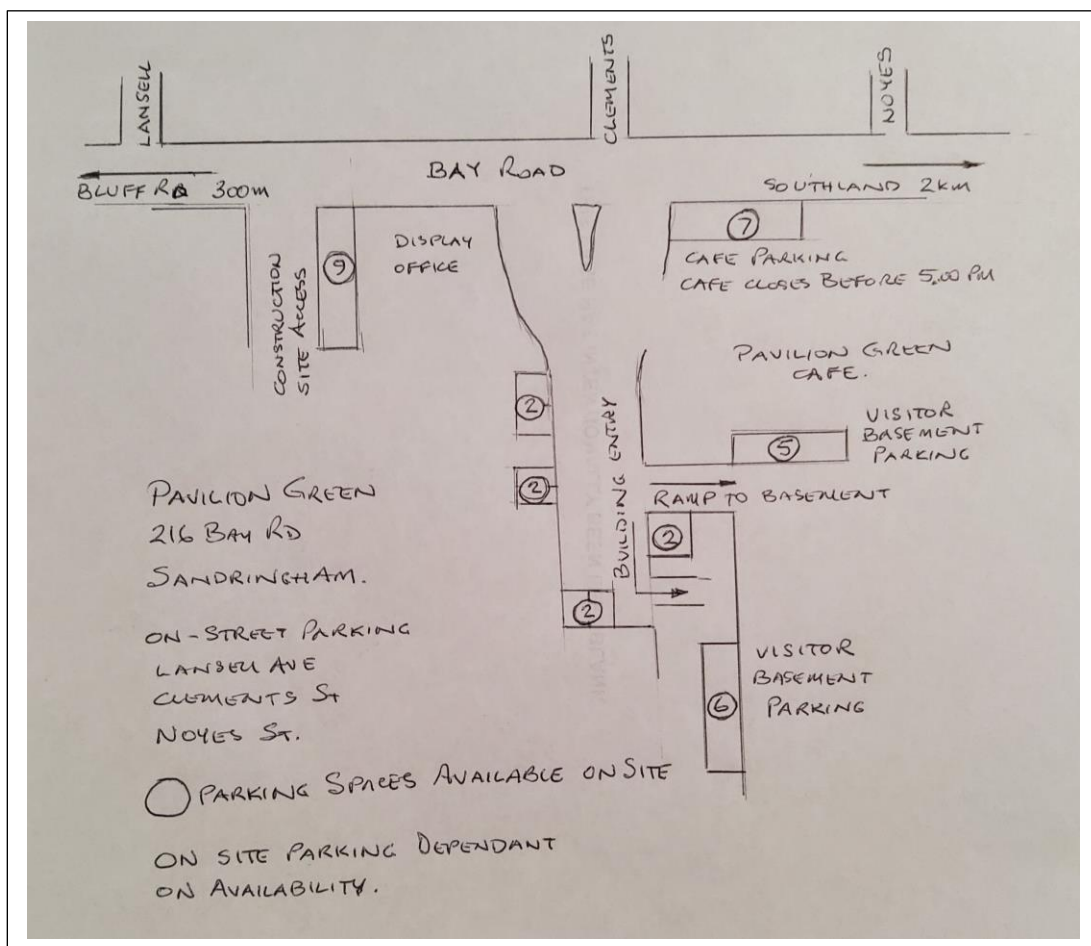 LANSELL
CLEMENTS
NOYES
BAY ROAD
BLUFF RD 300m
SOUTHLAND 2km
CONSTRUCTION
SITE ACCESS
9
DISPLAY
OFFICE
7
CAFE PARKING
CAFE CLOSES BEFORE 5.00 PM
PAVILION GREEN
CAFE.
2
BUILDING ENTRY
5
VISITOR
BASEMENT
PARKING
2
RAMP TO BASEMENT
2
2
PAVILION GREEN
216 BAY RD
SANDRINGHAM.
ON-STREET PARKING
LANSELL AVE
CLEMENTS ST
NOYES ST.
6
VISITOR
BASEMENT
PARKING
PARKING SPACES AVAILABLE ON SITE
ON SITE PARKING DEPENDANT
ON AVAILABILITY.